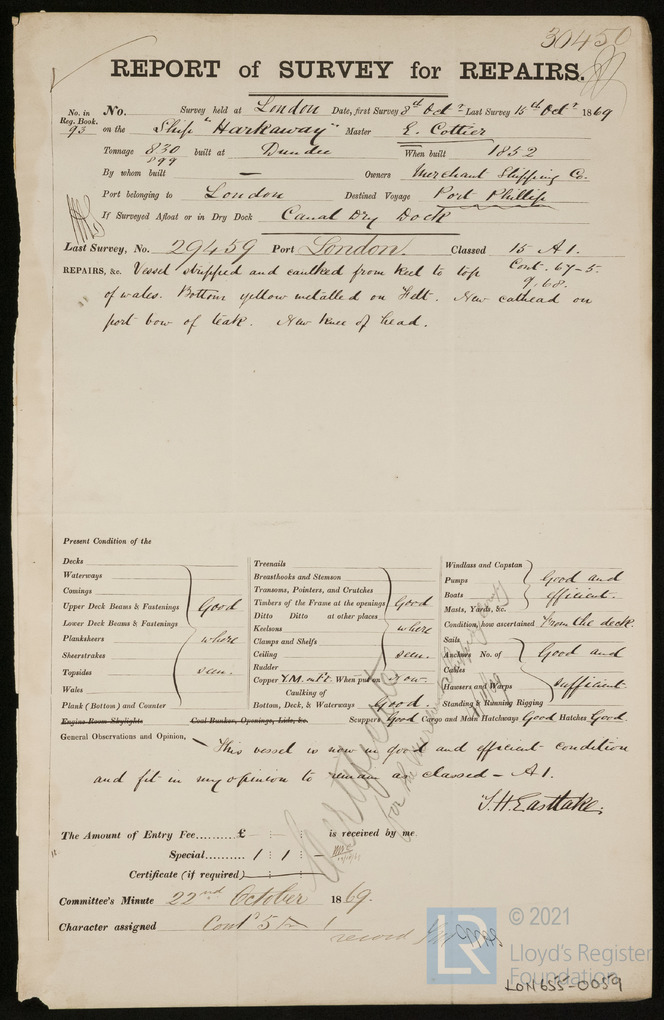 30450
REPORT of SURVEY for REPAIRS.
No. in Reg. Book. 93 No. Survey held at London Date, first Survey 8th Octr Last Survey 15th Octr 1869
on the Ship "Harkaway" Master E. Cottier
Tonnage 830 899 built at Dundee When built 1852
By whom built — Owners Merchant Shipping Co.
Port belonging to London Destined Voyage Port Phillip
If Surveyed Afloat or in Dry Dock Canal Dry Dock
Last Survey, No. 29459 Port London. Classed 15 A1.
Cont. 67-5.
9,68.
REPAIRS, &c. Vessel stripped and caulked from keel to top
of wales. Bottom yellow metalled on Felt. New cathead on
port bow of teak. New knee of head.
Present Condition of the
Decks
Waterways
Comings
Upper Deck Beams & Fastenings Good
Lower Deck Beams & Fastenings
Planksheers where
Sheerstrakes
Topsides seen.
Wales
Plank (Bottom) and Counter
Treenails
Breasthooks and Stemson
Transoms, Pointers, and Crutches
Timbers of the Frame at the openings Good
Ditto Ditto at other places
Keelsons where
Clamps and Shelfs
Ceiling seen.
Rudder
Copper Y.M. on Ft. When put on now.
Caulking of
Bottom, Deck, & Waterways Good.
Windlass and Capstan
Pumps Good and
Boats efficient.
Masts, Yards, &c.
Condition, how ascertained From the deck.
Sails
Anchors No. of Good and
Cables
Hawsers and Warps sufficient
Standing & Running Rigging
Engine Room Skylights Coal Bunker, Openings, Lids, &c. Scuppers Good Cargo and Main Hatchways Good Hatches Good.
General Observations and Opinion, This vessel is now in good and efficient condition
and fit in my opinion to remain as classed - A1.
T. H. Eastlake.
The Amount of Entry Fee.......... £ : : is received by me
Special.......... 1 : 1 : —
Certificate (if required)
Committee's Minute 22nd October 1869.
Character assigned Contd 5
record
Certificate
for the
© 2021
LR
Lloyd's Register
Foundation
LON655-0059